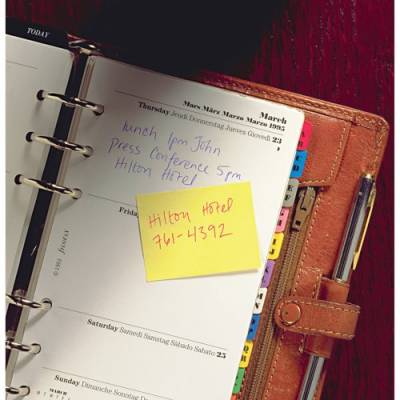 TODAY
March
Mars März Marzo Marzo 1995
Thursday Jeudi Donnerstag Jueves Giovedi 23
lunch 1pm John
Press Conference 5pm
Hilton Hotel
Friday
Hilton Hotel
761-4392
Saturday Samedi Samstag Sábado Sabato 25
Sunday Dimanche Sonntag
MARCH